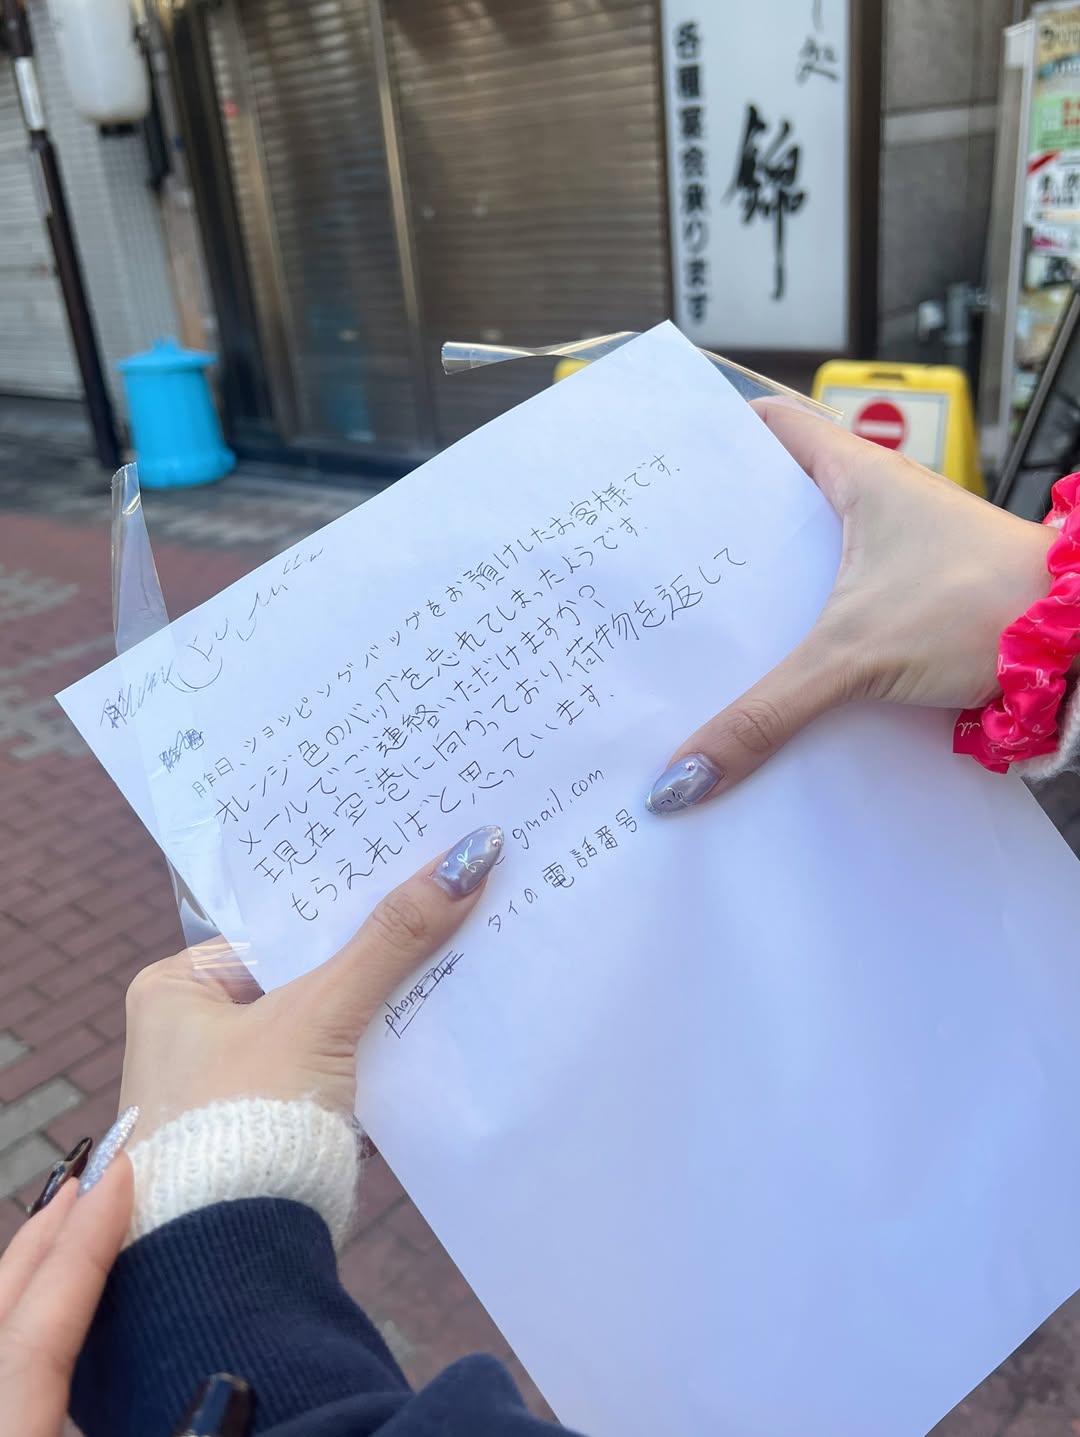 処
錦
各種宴会承ります
昨日、ショッピングバッグをお預けしたお客様です。
オレンジ色のバッグを忘れてしまったようです。
メールでご連絡いただけますか?
現在空港に向かっており、荷物を返して
もらえればと思っています。
gmail.com
タイの電話番号
phone nu